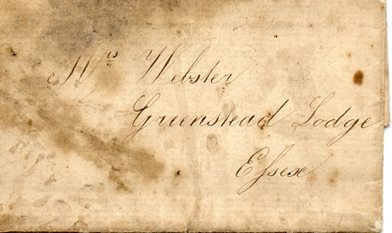 Mrs Webster
Greenstead Lodge
Essex